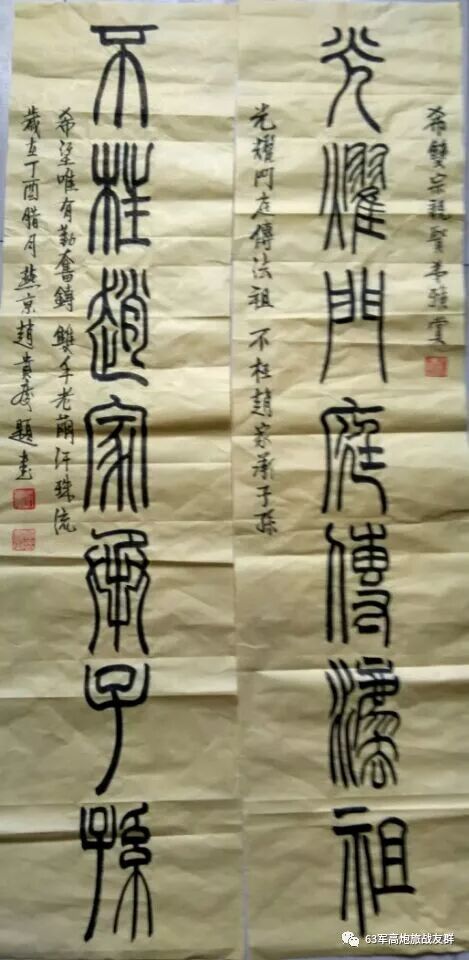 希雙宗競賢弟雅賞
光燿門庭傳灋祖
光耀門庭傳法祖 不枉趙家承子孫
不枉趙家承子孫
希望唯有勤奮鑄 雙手老繭汗珠流
歲在丁酉腊月燕京趙貴題書
63军高炮旅战友群